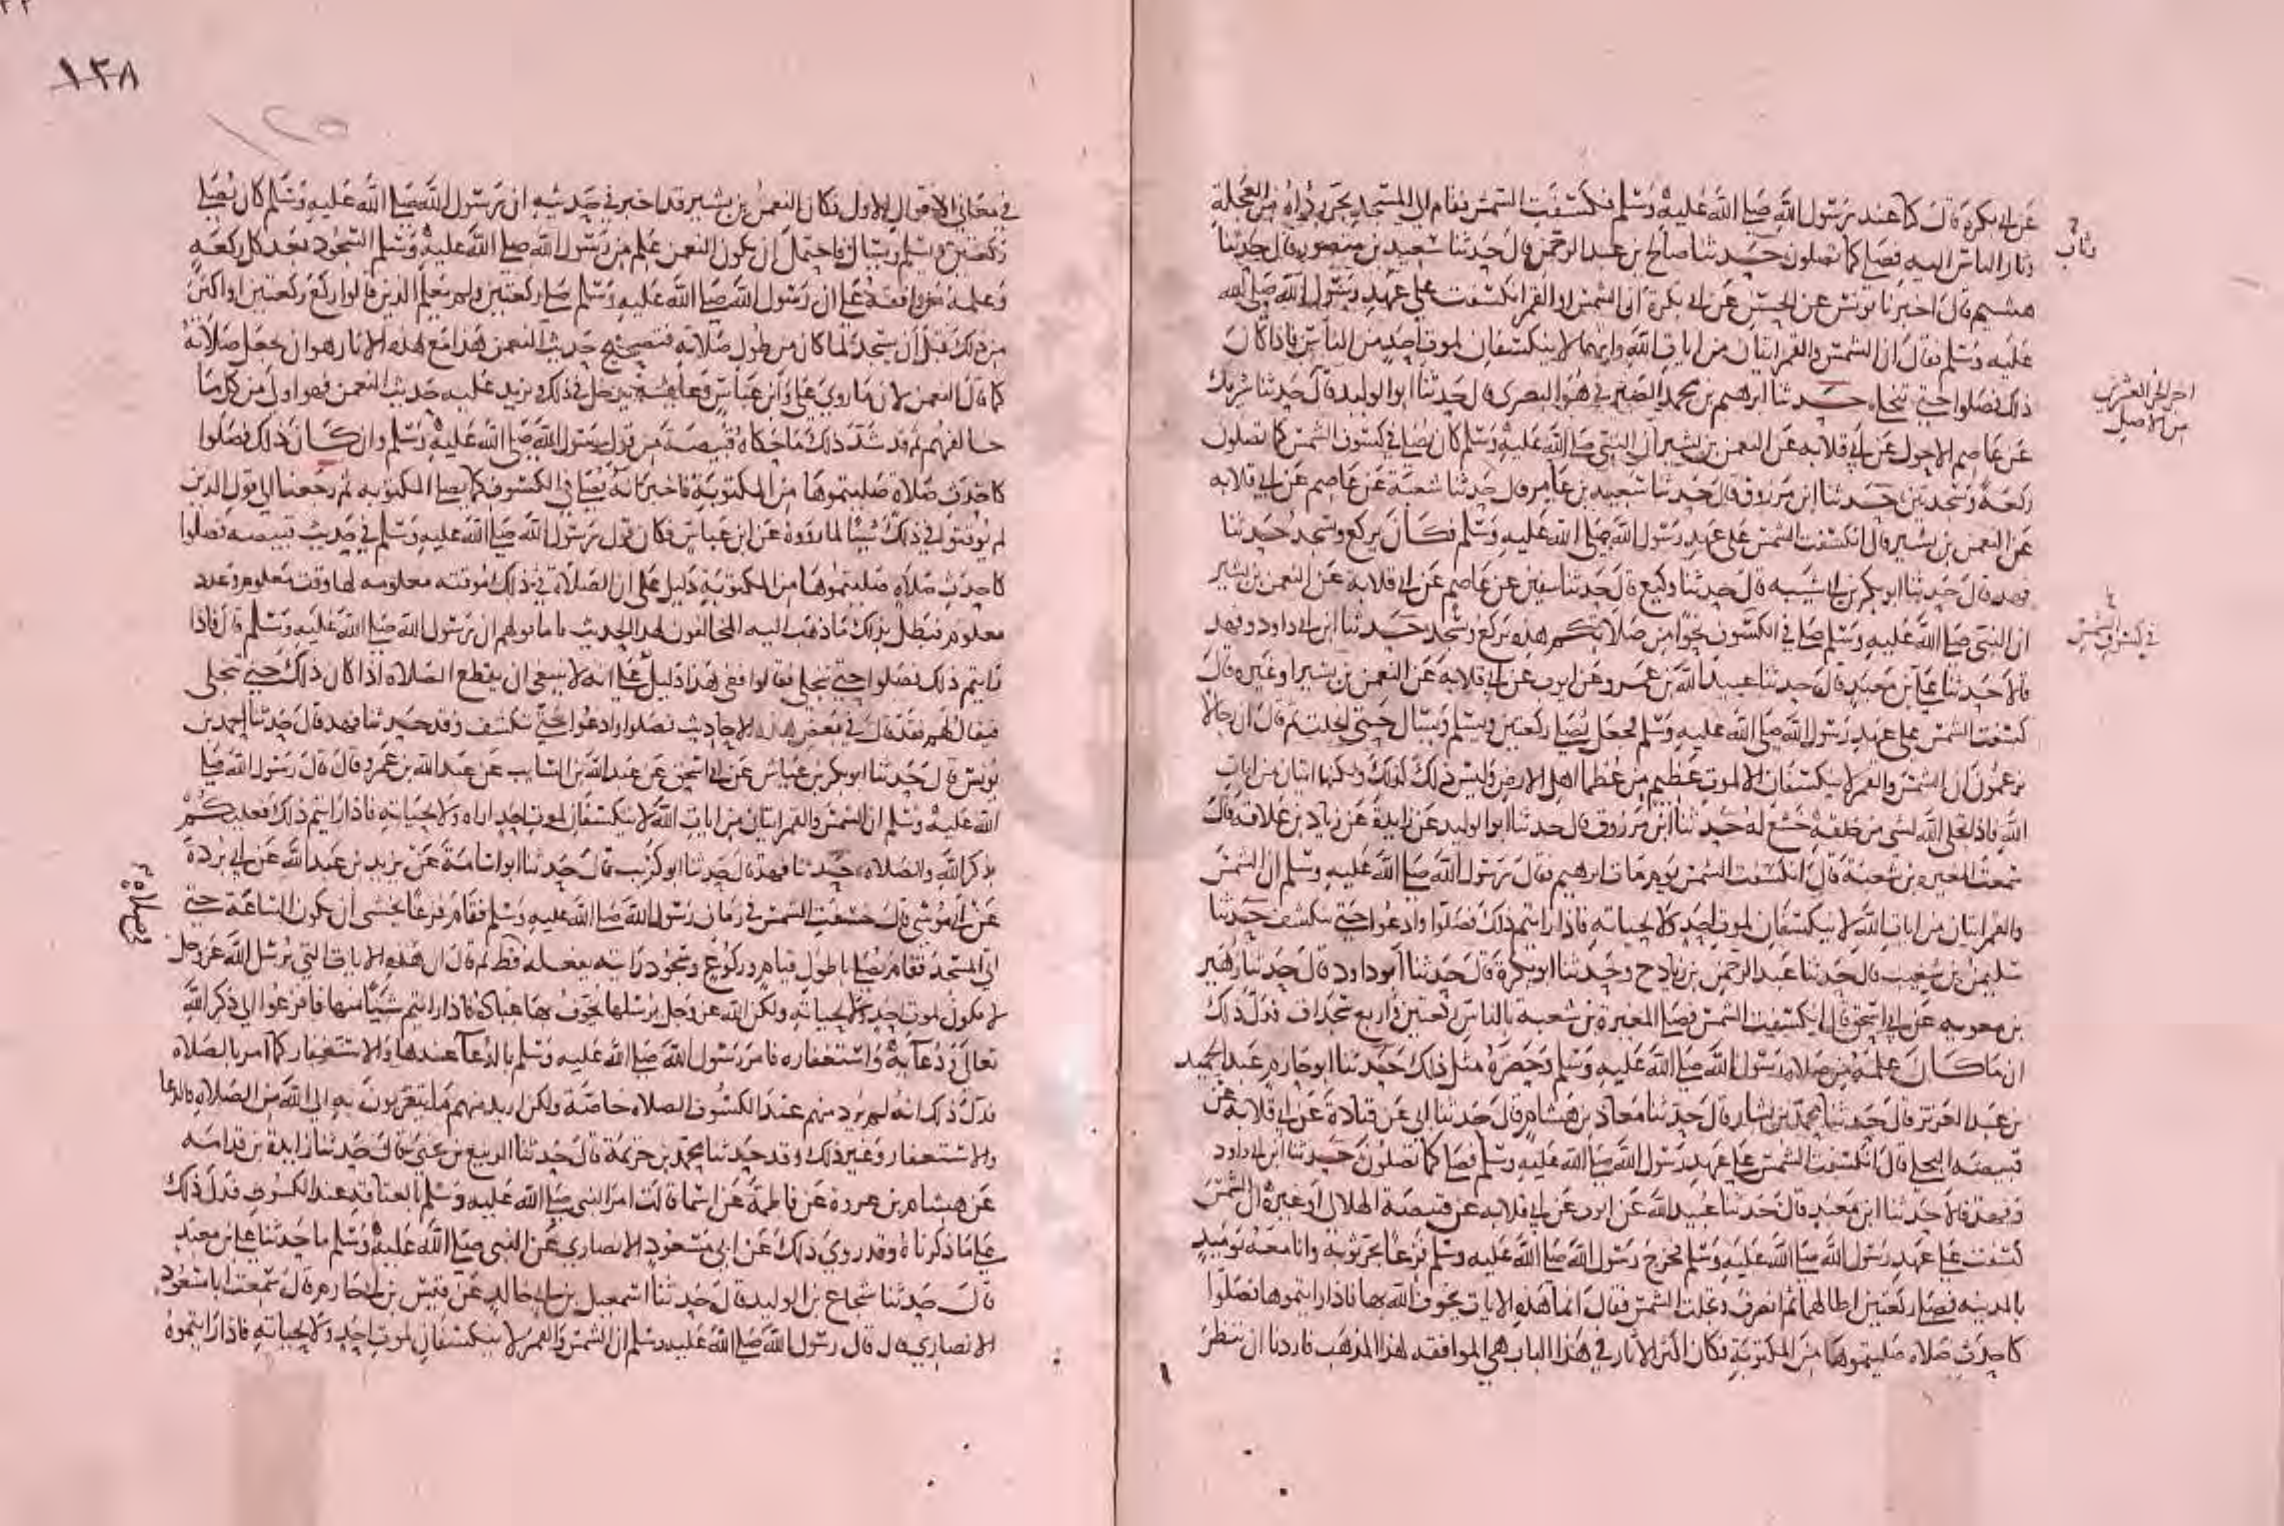 عن ابي بكرة قال كنا عند رسول الله صلى الله عليه وسلم فكسفت الشمس فقام الى المسجد يجر رداه من العجلة
وثار الناس اليه فصلى كما تصلون حدثنا صالح بن عبد الرحمن قال حدثنا سعيد بن منصور قال حدثنا
هشيم قال اخبرنا يونس عن الحسن عن ابي بكرة ان الشمس او القمر انكسفت على عهد رسول الله صلى الله
عليه وسلم فقال ان الشمس والقمر ايتان من ايات الله وانهما لا ينكسفان لموت احد من الناس فاذا كان
ذلك فصلوا حتى تنجلي حدثنا ابرهيم بن محمد الصيرفي هو البصري قال حدثنا ابو الوليد قال حدثنا شريك
عن عاصم الاحول عن ابي قلابه عن النعمن بن بشير ان النبي صلى الله عليه وسلم كان يصلي في كسوف الشمس كما تصلون
ركعة وسجدتين حدثنا ابن مرزوق قال حدثنا سعيد بن عامر قال حدثنا شعبة عن عاصم عن ابي قلابه
عن النعمن بن بشير قال انكسفت الشمس على عهد رسول الله صلى الله عليه وسلم فكان يركع ويسجد حدثنا
فهد قال حدثنا ابو بكر بن ابي شيبه قال حدثنا وكيع قال حدثنا سفين عن عاصم عن ابي قلابة عن النعمن بن بشير
ان النبي صلى الله عليه وسلم صلى في الكسوف نحوا من صلاتكم هذه يركع ويسجد حدثنا ابن ابي داود وفهد
قالا حدثنا علي بن معبد قال حدثنا عبيد الله بن عمرو عن ايوب عن ابي قلابة عن النعمن بن بشير او غيره قال
كسفت الشمس على عهد رسول الله صلى الله عليه وسلم فجعل يصلي ركعتين ويسلم ويسال حتى انجلت ثم قال ان رجالا
يزعمون ان الشمس والقمر لا ينكسفان الا لموت عظيم من عظما اهل الارض وليس ذلك كذلك ولكنهما ايتان من ايات
الله فاذا تجلى الله لشي من خلقه خشع له حدثنا ابن مرزوق قال حدثنا ابو الوليد عن زايدة عن زياد بن علاقه قال
سمعت المغيرة بن شعبة قال انكسفت الشمس يوم مات ابرهيم فقال رسول الله صلى الله عليه وسلم ان الشمس
والقمر ايتان من ايات الله لا ينكسفان لموت احد ولا لحياته فاذا رايتم ذلك فصلوا وادعوا حتى تنكشف حدثنا
سليمن بن شعيب قال حدثنا عبد الرحمن بن زياد ح وحدثنا ابو بكرة قال حدثنا ابو داود قال حدثنا زهير
بن معويه عن ابي اسحق قال انكسفت الشمس فصلى المغيرة بن شعبة بالناس ركعتين واربع سجدات فدل ذلك
ان ما كان علمه من صلاة رسول الله صلى الله عليه وسلم وحضره مثل ذلك حدثنا ابو حازم عبد الحميد
بن عبد العزيز قال حدثنا محمد بن بشار قال حدثنا معاذ بن هشام قال حدثنا ابي عن قتادة عن ابي قلابة عن
قبيصه البجلي قال انكسفت الشمس على عهد رسول الله صلى الله عليه وسلم فصلى كما تصلون حدثنا ابن ابي داود
وفهد قالا حدثنا ابن معبد قال حدثنا عبيد الله عن ايوب عن ابي قلابه عن قبيصة الهلالي او غيره ان الشمس
كسفت على عهد رسول الله صلى الله عليه وسلم فخرج رسول الله صلى الله عليه وسلم فزعا يجر ثوبه وانا معه يوميذ
بالمدينه فصلى ركعتين اطالهما ثم انصرف وتجلت الشمس فقال انما هذه الايات يخوف الله بها فاذا رايتموها فصلوا
كاحدث صلاه صليتموها من المكتوبة فكان اكثر الاثار في هذا الباب هي الموافقه لهذا المذهب فاردنا ان ننظر
اخر الجزء العشرين
من الاصل
في كسوف الشمس
١٣٨
١٢٥
في معاني الاقوال الاول فكان النعمن بن بشير قد اخبر في حديثه ان رسول الله صلى الله عليه وسلم كان يصلي
ركعتين ويسلم ويسال فاحتمل ان يكون النعمن علم من رسول الله صلى الله عليه وسلم السجود بعد كل ركعة
وعلمه من وافقه على ان رسول الله صلى الله عليه وسلم صلى ركعتين ولم يعلم الذين قالوا ركع ركعتين او اكثر
من ذلك قبل ان يسجد لما كان من طول صلاته فتصحيح حديث النعمن هذا مع هذه الاثار هو ان يجعل صلاته
كما قال النعمن لان ما روى علي وابن عباس وعايشة يدخل في ذلك ويزيد عليه حديث النعمن فهو اولى من كل ما
خالفه ثم قد شد ذلك ما حكاه قبيصة من قول رسول الله صلى الله عليه وسلم وان كان ذلك فصلوا
كاحدث صلاة صليتموها من المكتوبة فاخبر انه يصلى في الكسوف كما يصلى المكتوبه ثم رجعنا الى قول الذين
لم يوقتوا في ذلك شيئا لما رووه عن ابن عباس فكان قول رسول الله صلى الله عليه وسلم في حديث قبيصه فصلوا
كاحدث صلاة صليتموها من المكتوبة دليل على ان الصلاة في ذلك موقته معلومه لها وقت معلوم وعدد
معلوم فبطل بذلك ما ذهب اليه المخالفون لهذا الحديث فاما قولهم ان رسول الله صلى الله عليه وسلم قال فاذا
رايتم ذلك فصلوا حتى تنجلي فقالوا ففي هذا دليل على انه لا ينبغي ان يقطع الصلاه اذا كان ذلك حتى تنجلي
فيقال لهم فقد قال في بعض هذه الاحاديث فصلوا وادعوا حتى تنكشف وقد حدثنا فهد قال حدثنا احمد بن
يونس قال حدثنا ابو بكر بن عياش عن ابي اسحق عن عبد الله بن السايب عن عبد الله بن عمرو قال قال رسول الله صلى
الله عليه وسلم ان الشمس والقمر ايتان من ايات الله لا ينكسفان لموت احد اراه ولا لحياته فاذا رايتم ذلك فعليكم
بذكر الله والصلاه حدثنا فهد قال حدثنا ابو كريب قال حدثنا ابو اسامة عن بريد بن عبد الله عن ابي بردة
عن ابي موسى قال خسفت الشمس في زمان رسول الله صلى الله عليه وسلم فقام فزعا يخشى ان يكون الساعة حتى
اتى المسجد فقام يصلي باطول قيام وركوع وسجود رايته يفعله قط ثم قال ان هذه الايات التي يرسل الله عز وجل
لا يكون لموت احد ولا لحياته ولكن الله عز وجل يرسلها يخوف بها عباده فاذا رايتم شيئا منها فافزعوا الى ذكر الله
تعالى ودعايه واستغفاره فامر رسول الله صلى الله عليه وسلم بالدعا عندها والاستغفار كما امر بالصلاه
فدل ذلك انه لم يرد منهم عند الكسوف الصلاه خاصة ولكن اريد منهم ما يتقربون به الى الله من الصلاه والدعا
والاستغفار وغير ذلك وقد حدثنا محمد بن خزيمة قال حدثنا الربيع بن يحيى قال حدثنا زايدة بن قدامه
عن هشام بن عروة عن فاطمة عن اسما قالت امر النبي صلى الله عليه وسلم بالعتاقه عند الكسوف فدل ذلك
على ما ذكرناه وقد روي ذلك عن ابي مسعود الانصاري عن النبي صلى الله عليه وسلم ما حدثنا علي بن معبد
قال حدثنا شجاع بن الوليد قال حدثنا اسمعيل بن ابي خالد عن قيس بن ابي حازم قال سمعت ابا مسعود
الانصاري قال قال رسول الله صلى الله عليه وسلم ان الشمس والقمر لا ينكسفان لموت احد ولا لحياته فاذا رايتموه